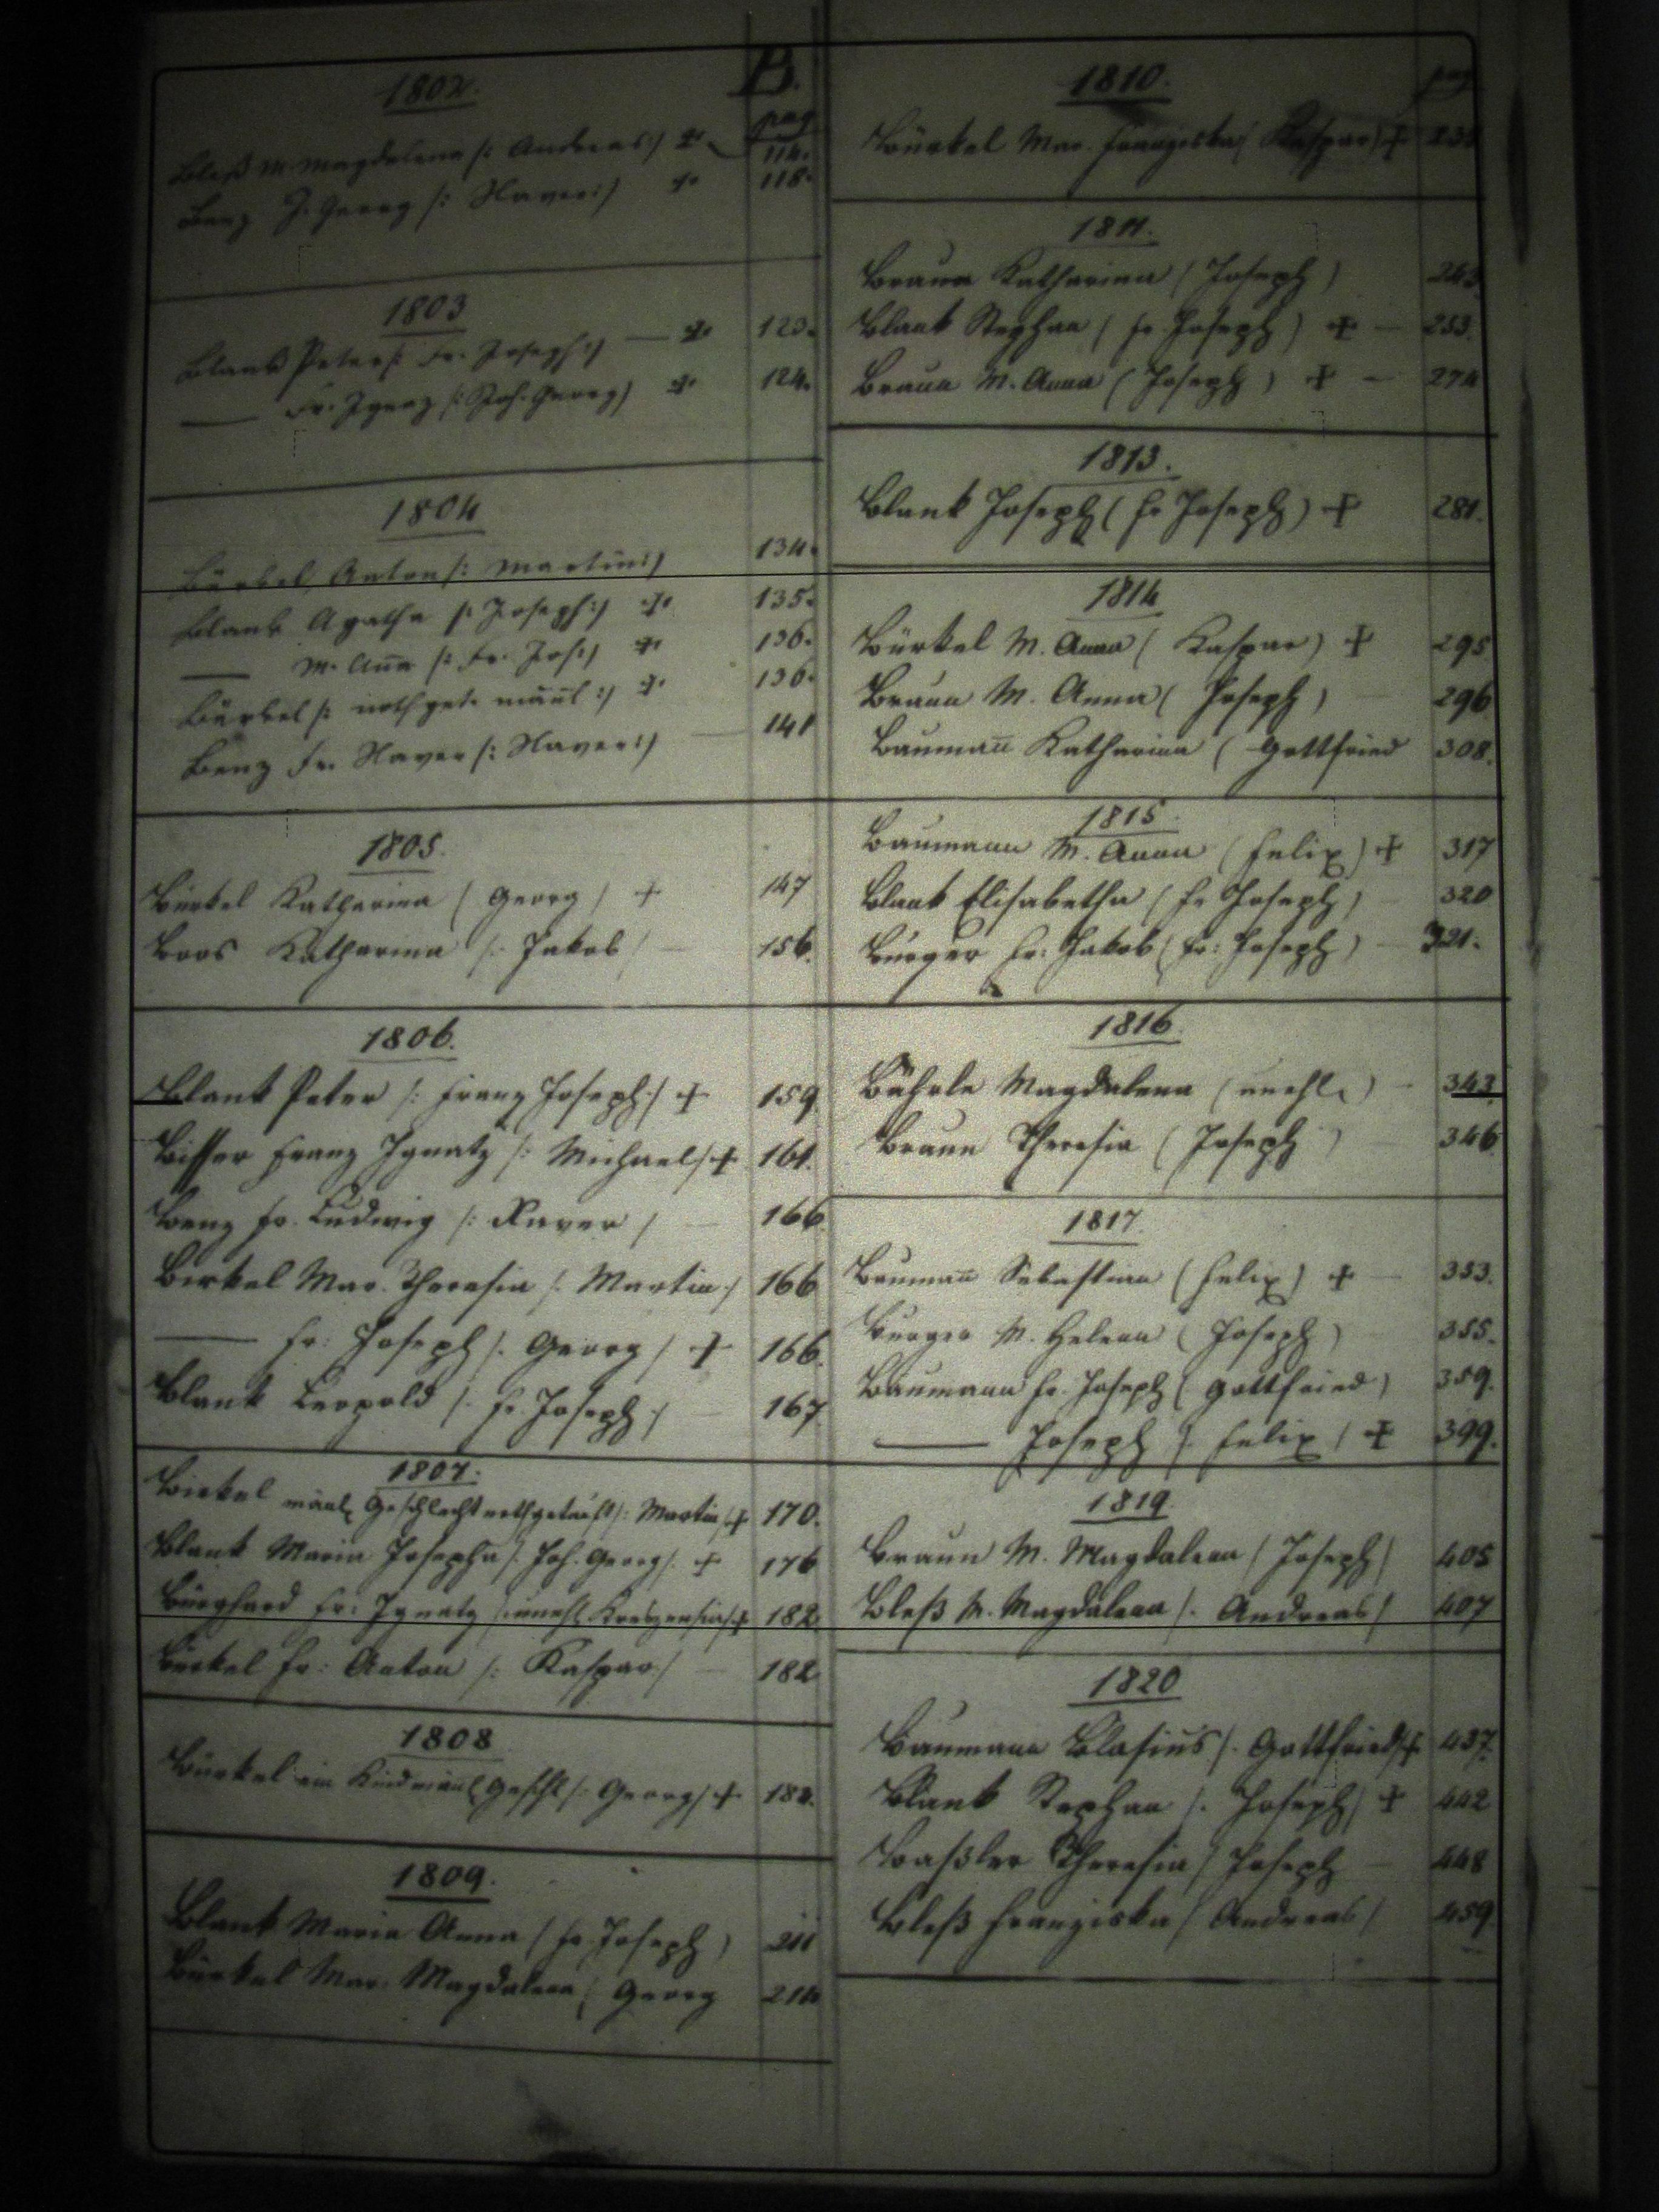 B.
1802.
pag
Bleß M. Magdalena /: Andreas :/ + 114.
Benz J. Georg /: Xaver :/ + 118.
1803
Blank Peter /: Fr. Joseph :/ — + 123.
—— Fr. Ignaz /: Joh. Georg / + 124.
1804
Bürkel Anton /: Martin :/ 134.
Blank Agatha /: Joseph :/ + 135.
—— M. Aña /: Fr. Jos :/ + 136.
Bürkel /: nothget. mäñl :/ + 136.
Benz Fr. Xaver /: Xaver :/ — 141
1805.
Bürkel Katharina ( Georg ) + 147
Boos Katharina /: Jakob / — 156.
1806.
Blank Peter /: Franz Joseph :/ + 159.
Bisser Franz Ignatz /: Michael / + 161.
Benz Fr. Ludwig /: Xaver / — 166.
Birkel Mar. Theresia /: Martin :/ 166
—— Fr: Joseph /. Georg / + 166.
Blank Leopold /. Fr. Joseph :/ — 167.
1807.
Birkel mänl. Geschlecht nothgetauft /: Martin / + 170.
Blank Maria Josepha /. Joh. Georg /. + 176
Burghard Fr: Ignatz /: unehl. Kreszensia / + 182.
Bürkel Fr: Anton /: Kaspar / — 182
1808
Bürkel ein Kind mänl. Geschl /: Georg / + 182.
1809.
Blank Maria Anna ( Fr. Joseph ) 211
Bürkel Mar. Magdalena ( Georg 214
1810.
pag
Bürkel Mar. Franziska ( Kaspar ) +
1811.
Braun Katharina ( Joseph ) 243
Blank Stephan ( Fr. Joseph ) + — 253.
Braun M. Anna ( Joseph ) + — 274
1813.
Blank Joseph ( Fr Joseph ) + 281.
1814
Bürkel M. Anna ( Kaspar ) + 295
Braun M. Anna ( Joseph ) 296
Baumañ Katharina ( Gottfried 308.
1815.
Baumann M. Anna ( Felix ) + 317
Blank Elisabetha ( Fr Joseph ) 320
Burger Fr: Jakob ( Fr: Joseph ) — 321.
1816.
Bährle Magdalena ( unehl. ) — 343.
Braun Theresia ( Joseph ) 346
1817.
Baumañ Sebastian ( Felix ) + — 353.
Burger M. Helena ( Joseph ) 355.
Baumann Fr. Joseph ( Gottfried ) 359.
—— Joseph /. Felix / + 399.
1819.
Braun M. Magdalena / Joseph / 405
Bleß M. Magdalena /. Andreas / 407
1820
Baumann Blasius /. Gottfried / + 437.
Blank Stephan /. Joseph / + 442
Baßler Theresia / Joseph — 448
Bleß Franziska / Andreas / 459